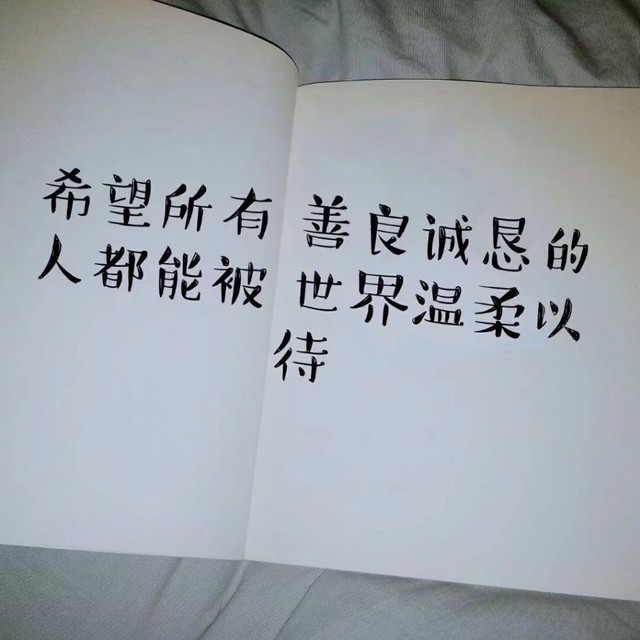 希望所有 善良诚恳的
人都能被 世界温柔以
待